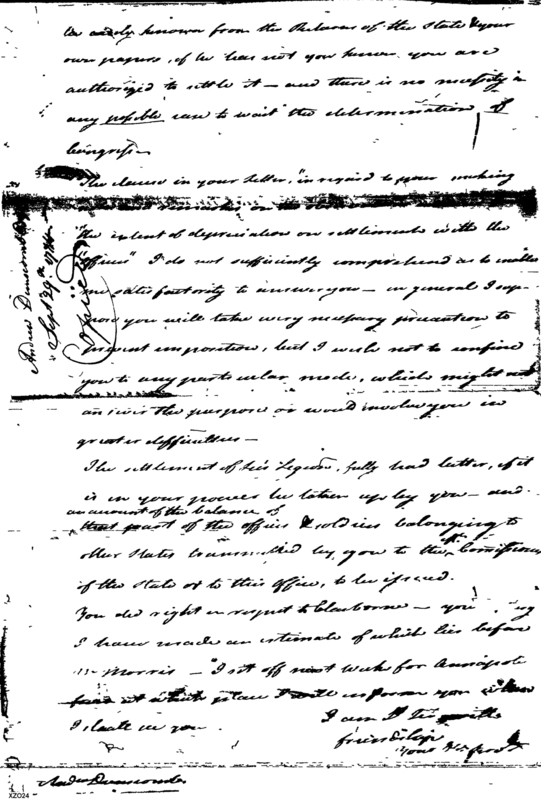 be easily known from the Returns of the State & your
own papers, if he has not you know you are
authorized to settle it — and there is no necessity in
any possible case to wait the determination of
Congress —
The clause in your letter, "in regard to your making
and remarks, on the
"the extent of depreciation on settlements with the
officers" I do not sufficiently comprehend as to make
me satisfactority to answer you — in general I sup-
pose you will take very necessary precaution to
prevent imposition, but I wish not to confine
you to any particular mode, which might not
answer the purpose or would involve you in
greater difficulties —
The settlement of his Legion, fully had better, if it
is in your power be taken up by you — and
an amount of the balance of
that part of the officers & soldiers belonging to
other States transmitted by you to the Comissioner
of the State or to this Office, to be issued.
You did right in respect to Claiborne — you
I have made an estimate of which lies before
Mr Morris — I set off next week for Annapolis
at which place I will inform you
I state in you.
I am
friendship
Your
Andrew Dunscomb
Sept 29th 1784
Official
Andw Dunscombe
XZO24